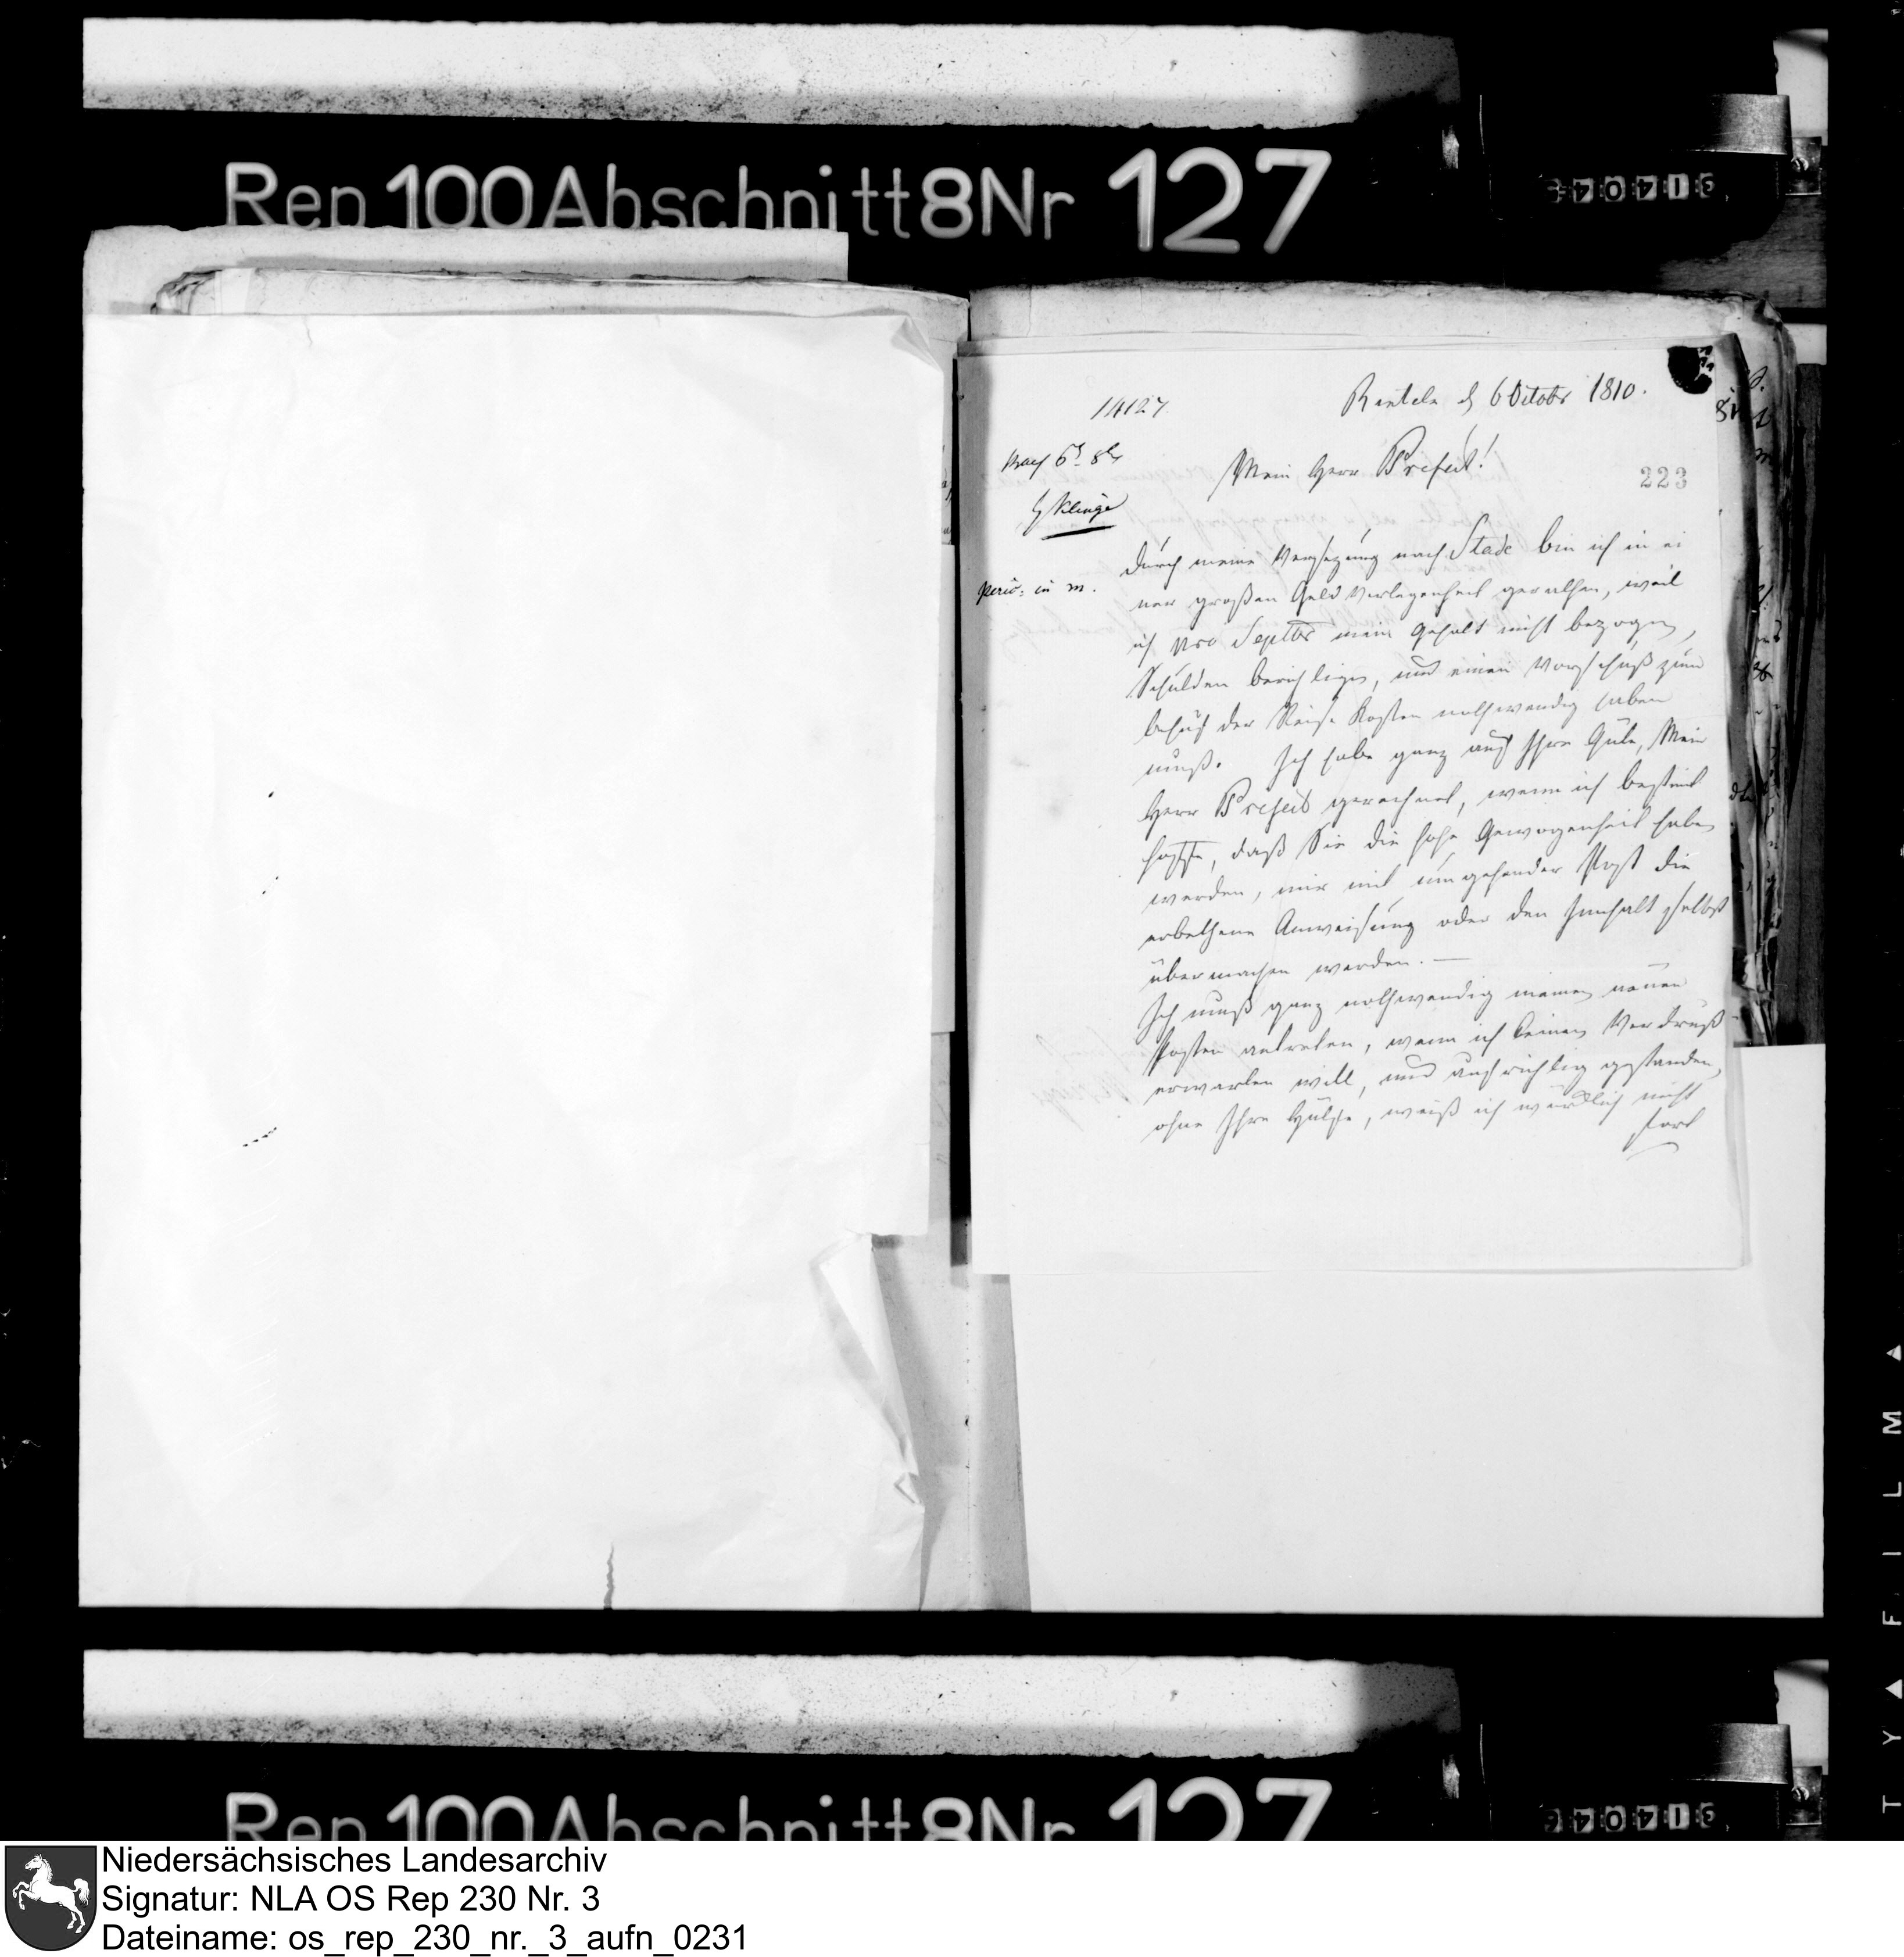 Rep 100 Abschnitt 8 Nr 127
14127.
Rinteln d 6 Octobr 1810.
Mein Herr Prefect!
223
durch meine Versezung nach Stade bin ich in ei
ner großen Geld Verlegenheit gerathen, weil
ich pro Septbr mein Gehalt nicht bezogen,
Schulden berichtigen, und einen Vorschuß zum
behuf der Reise Kosten nothwendig haben
muß. Ich habe ganz auf Ihre Güte, Mein
Herr Prefect gerechnet, wenn ich bestimt
hoffte, daß Sie die hohe Gewogenheit haben
werden, mir mit umgehender Post die
erbethene Anweisung oder den Innhalt selbst
übermachen werden. —
Ich muß ganz nothwendig meinen neuen
Posten antreten, wenn ich keinen Verdruß
erwarten will, und aufrichtig gestanden,
ohne Ihre Hülfe, weiß ich würdlich nicht
fort
Rep 100 Abschnitt 8 Nr 127
T Y ▲ F I L M ▲
Niedersächsisches Landesarchiv
Signatur: NLA OS Rep 230 Nr. 3
Dateiname: os_rep_230_nr._3_aufn_0231